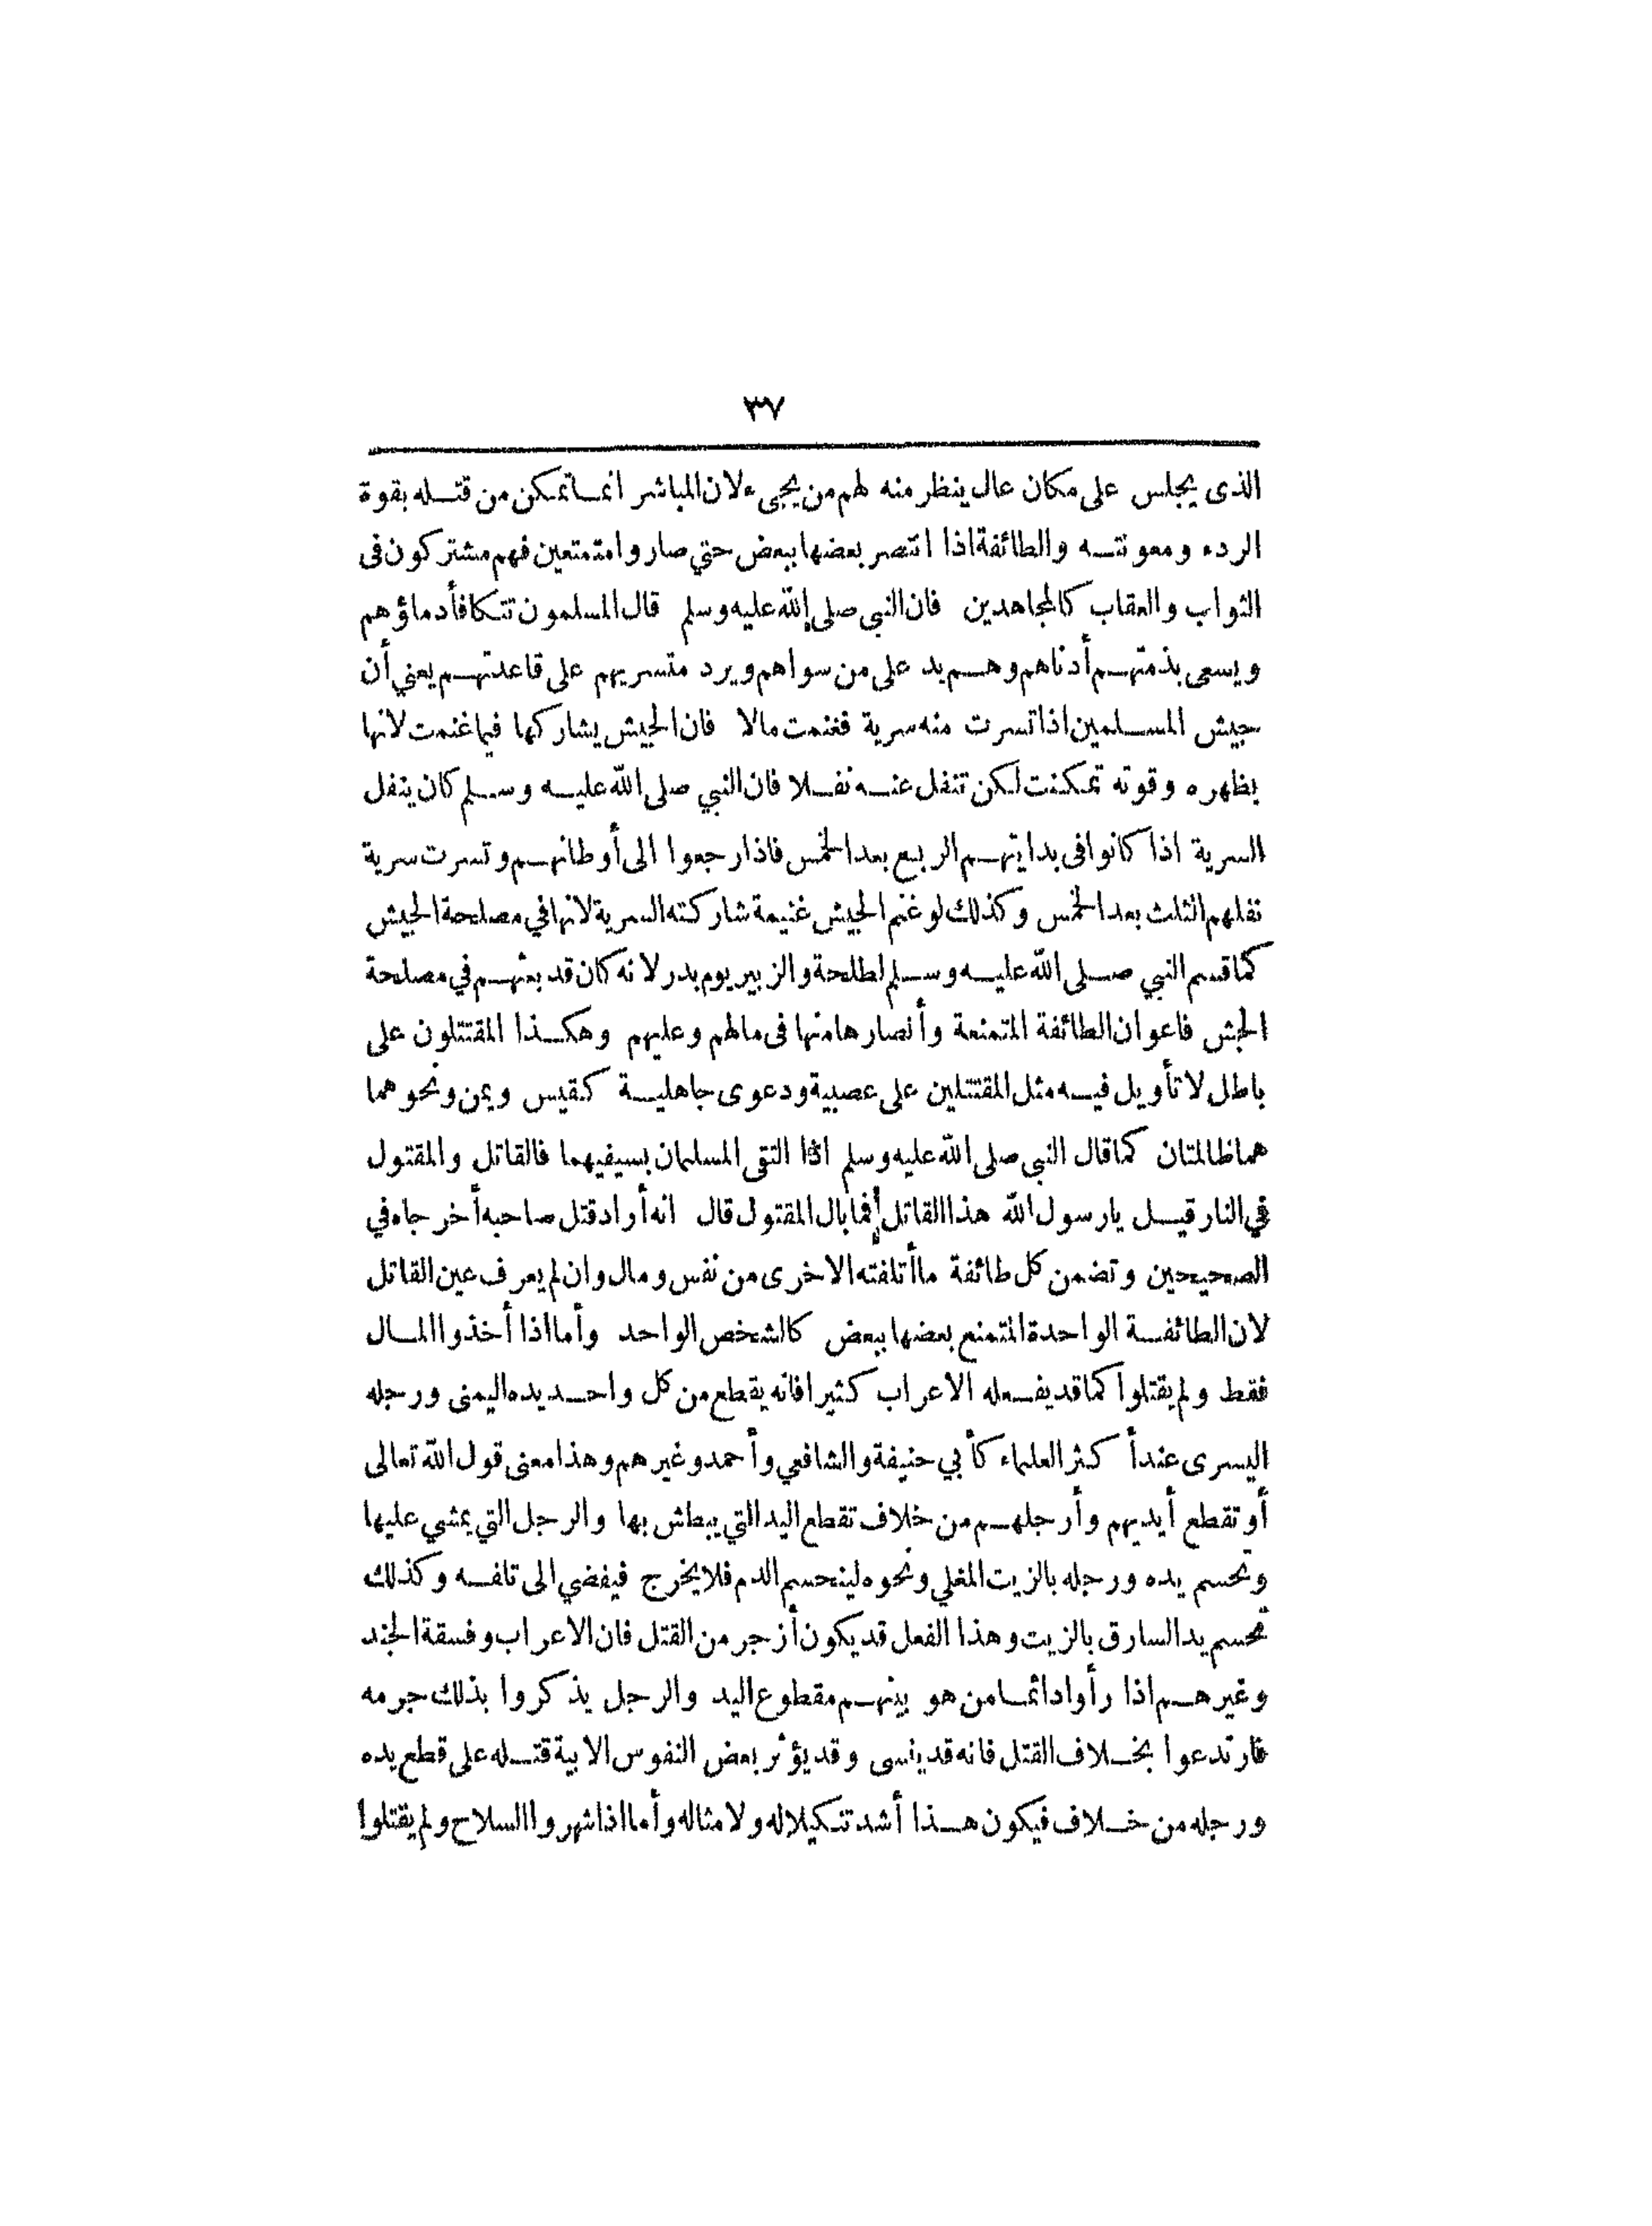 ٣٧
الذى يجلس على مكان عال ينظر منه لهم من يجىء لان المباشر انما تمكن من قتله بقوة
الردء ومعونته والطائفة اذا انتصر بعضها ببعض حتي صاروا ممتنعين فهم مشتركون فى
الثواب والعقاب كالمجاهدين فان النبى صلى الله عليه وسلم قال المسلمون تتكافأ دماؤهم
ويسعى بذمتهم أدناهم وهم يد على من سواهم ويرد متسريهم على قاعدتهم يعني أن
جيش المسلمين اذا تسرت منه سرية فغنمت مالا فان الجيش يشاركها فيما غنمت لانها
بظهره وقوته تمكنت لكن تنفل عنه نفلا فان النبي صلى الله عليه وسلم كان ينفل
السرية اذا كانوا فى بدايتهم الربع بعد الخمس فاذا رجعوا الى أوطانهم وتسرت سرية
نفلهم الثلث بعد الخمس وكذلك لو غنم الجيش غنيمة شاركته السرية لانها في مصلحة الجيش
كما قسم النبي صلى الله عليه وسلم لطلحة والزبير يوم بدر لانه كان قد بعثهم في مصلحة
الجش فاعوان الطائفة المتمنعة وأنصارها منها فى مالهم وعليهم وهكذا المقتتلون على
باطل لا تأويل فيه مثل المقتتلين على عصبية ودعوى جاهلية كقيس ويمن ونحوهما
هما ظالمتان كما قال النبى صلى الله عليه وسلم اذا التقى المسلمان بسيفيهما فالقاتل والمقتول
في النار قيل يارسول الله هذا القاتل فما بال المقتول قال انه أراد قتل صاحبه أخرجاه في
الصحيحين وتضمن كل طائفة ما أتلفته الاخرى من نفس ومال وان لم يعرف عين القاتل
لان الطائفة الواحدة المتمنع بعضها ببعض كالشخص الواحد وأما اذا أخذوا المال
فقط ولم يقتلوا كما قد يفعله الاعراب كثيرا فانه يقطع من كل واحد يده اليمنى ورجله
اليسرى عند أكثر العلماء كأبي حنيفة والشافعي وأحمد وغيرهم وهذا معنى قول الله تعالى
أو تقطع أيديهم وأرجلهم من خلاف تقطع اليد التي يبطش بها والرجل التي يمشي عليها
وتحسم يده ورجله بالزيت المغلي ونحوه لينحسم الدم فلا يخرج فيفضي الى تلفه وكذلك
تحسم يد السارق بالزيت وهذا الفعل قد يكون أزجر من القتل فان الاعراب وفسقة الجند
وغيرهم اذا رأوا دائما من هو بينهم مقطوع اليد والرجل يذكروا بذلك جرمه
فارتدعوا بخلاف القتل فانه قد ينسى وقد يؤثر بعض النفوس الابية قتله على قطع يده
ورجله من خلاف فيكون هذا أشد تنكيلا له ولامثاله وأما اذا شهروا السلاح ولم يقتلوا